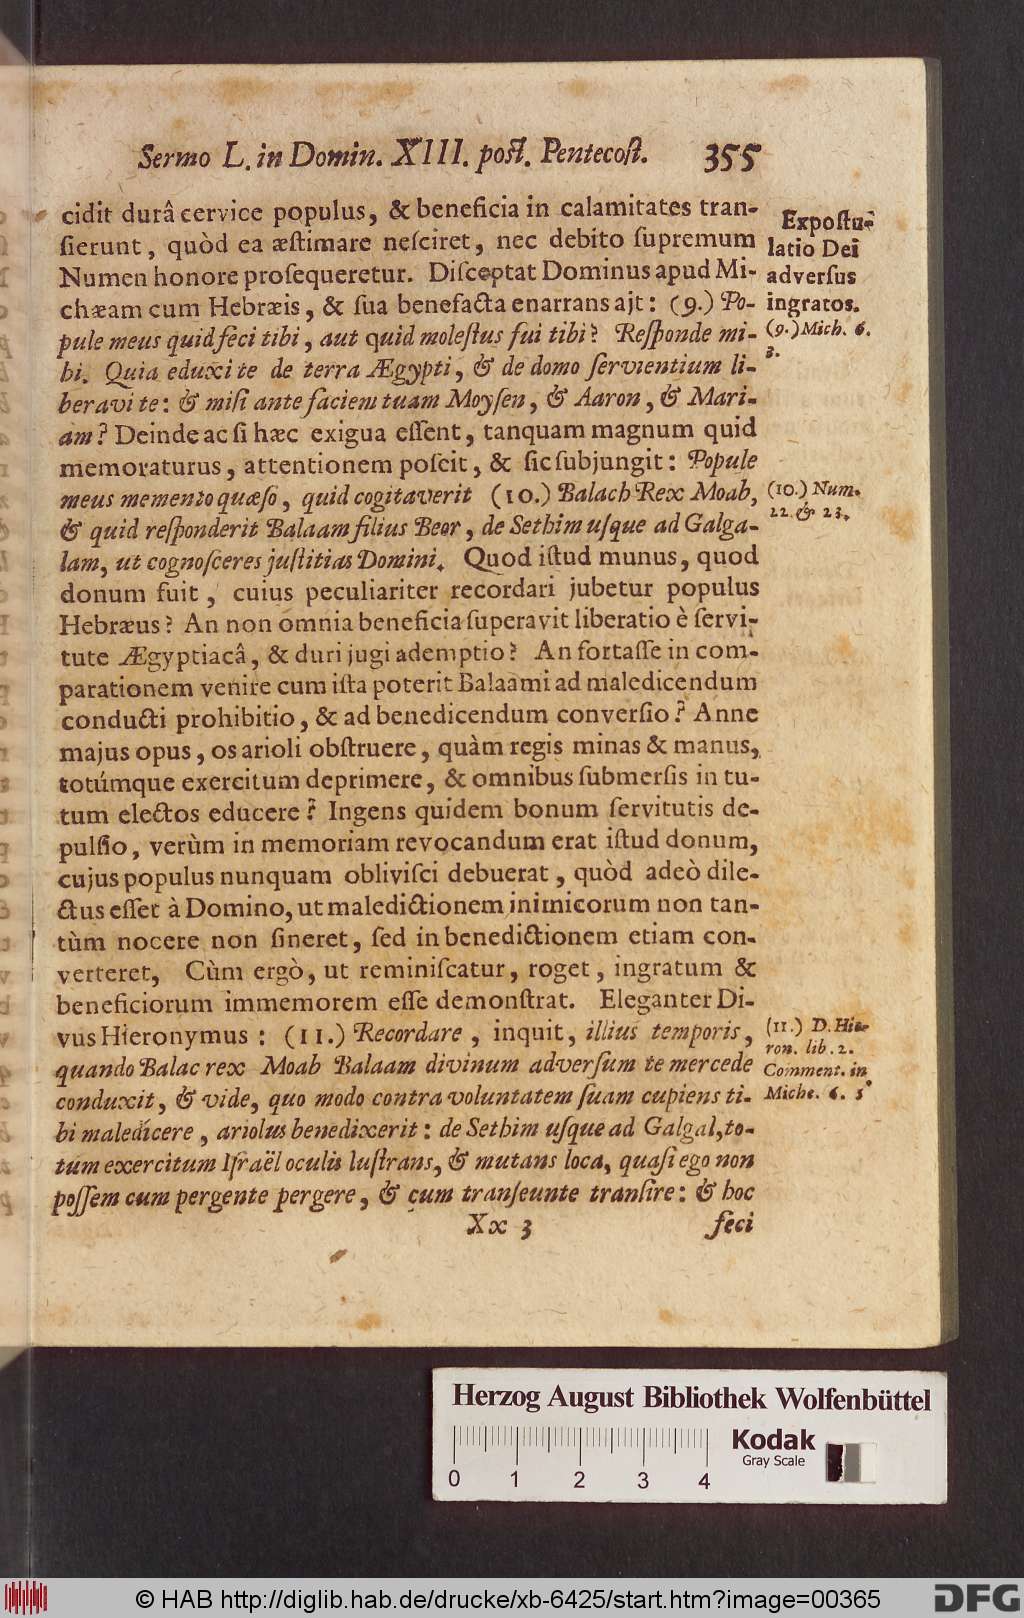 Sermo L. in Domin. XIII. post. Pentecoſt. 355
cidit durâ cervice populus, & beneficia in calamitates tran-
ſierunt, quòd ea æſtimare neſciret, nec debito ſupremum
Numen honore proſequeretur. Diſceptat Dominus apud Mi-
chæam cum Hebræis, & ſua benefacta enarrans ajt: (9.) Po-
pule meus quid feci tibi, aut quid moleſtus fui tibi? Reſponde mi-
bi. Quia eduxi te de terra Ægypti, & de domo ſervientium li-
beravi te: & miſi ante faciem tuam Moyſen, & Aaron, & Mari-
am? Deinde ac ſi hæc exigua eſſent, tanquam magnum quid
memoraturus, attentionem poſcit, & ſic ſubjungit: Popule
meus memento quæſo, quid cogitaverit (10.) Balach Rex Moab,
& quid reſponderit Balaam filius Beor, de Sethim uſque ad Galga-
lam, ut cognoſceres juſtitias Domini. Quod iſtud munus, quod
donum fuit, cuius peculiariter recordari jubetur populus
Hebræus? An non omnia beneficia ſuperavit liberatio è ſervi-
tute Ægyptiacâ, & duri jugi ademptio? An fortaſſe in com-
parationem venire cum iſta poterit Balaami ad maledicendum
conducti prohibitio, & ad benedicendum converſio? Anne
majus opus, os arioli obſtruere, quàm regis minas & manus,
totúmque exercitum deprimere, & omnibus ſubmerſis in tu-
tum electos educere? Ingens quidem bonum ſervitutis de-
pulſio, verùm in memoriam revocandum erat iſtud donum,
cujus populus nunquam obliviſci debuerat, quòd adeò dile-
ctus eſſet à Domino, ut maledictionem inimicorum non tan-
tùm nocere non ſineret, ſed in benedictionem etiam con-
verteret, Cùm ergò, ut reminiſcatur, roget, ingratum &
beneficiorum immemorem eſſe demonſtrat. Eleganter Di-
vus Hieronymus: (11.) Recordare, inquit, illius temporis,
quando Balac rex Moab Balaam divinum adverſum te mercede
conduxit, & vide, quo modo contra voluntatem ſuam cupiens ti-
bi maledicere, ariolus benedixerit: de Sethim uſque ad Galgal, to-
tum exercitum Iſraël oculis luſtrans, & mutans loca, quaſi ego non
poſſem cum pergente pergere, & cum tranſeunte tranſire: & hoc
Xx 3 feci
Expoſtu-
latio Dei
adverſus
ingratos.
(9.) Mich. 6.
3.
(10.) Num.
22. & 23.
(11.) D. Hie-
ron. lib. 2.
Comment. in
Miche. 6. 5
Herzog August Bibliothek Wolfenbüttel
0 1 2 3 4
Kodak
Gray Scale
© HAB http://diglib.hab.de/drucke/xb-6425/start.htm?image=00365
DFG